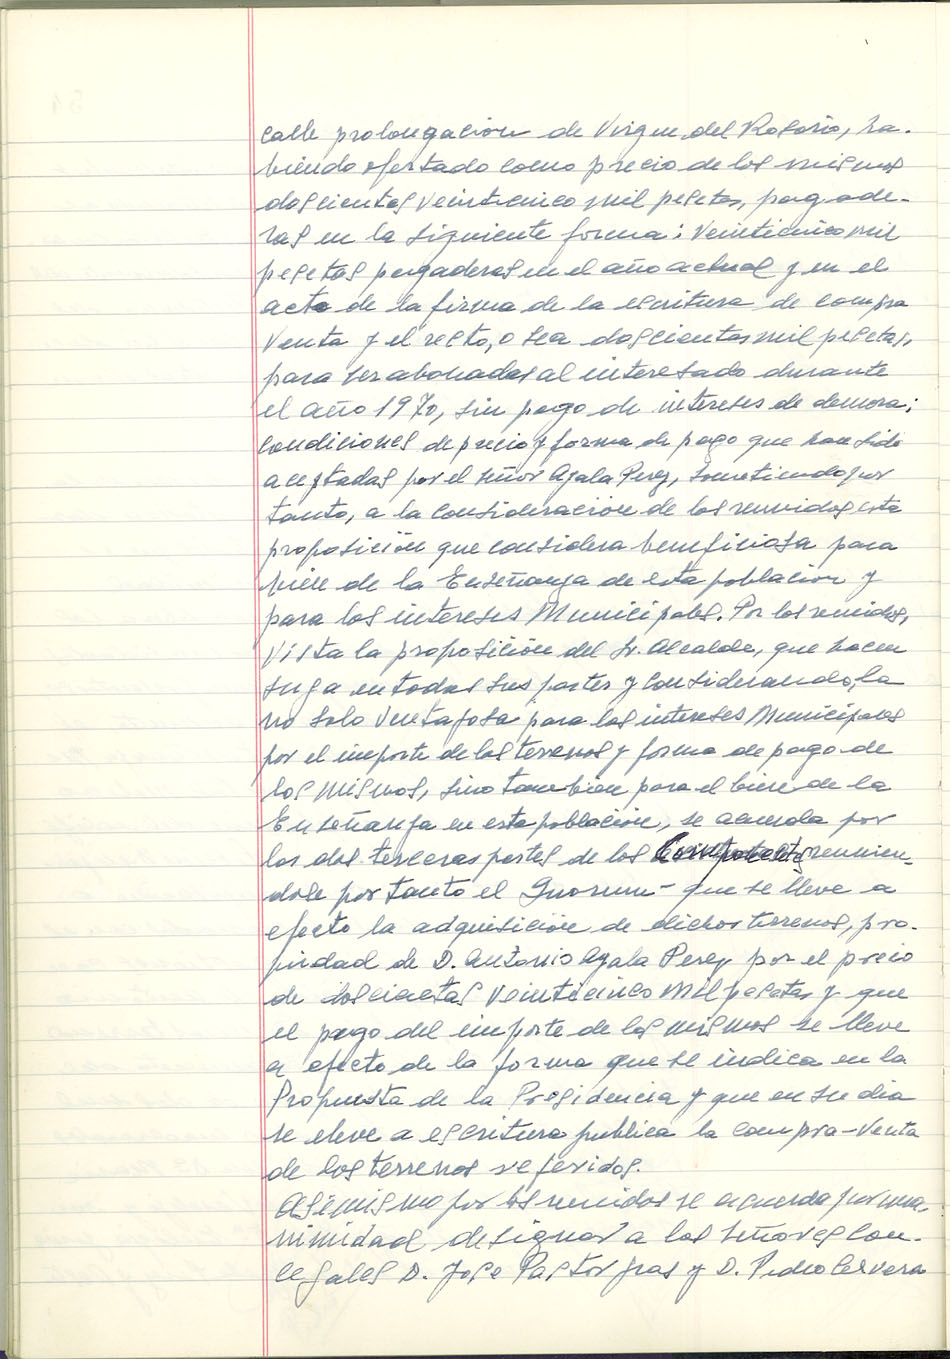 calle prolongación de Virgen del Rosario, ha-
biendo ofertado como precio de los mismos
doscientas veinticinco mil pesetas, pagade-
ras en la siguiente forma: veinticinco mil
pesetas pagaderas en el año actual y en el
acto de la firma de la escritura de compra
venta y el resto, o sea doscientas mil pesetas,
para ser abonadas al interesado durante
el año 1970, sin pago de intereses de demora;
condiciones de precio y forma de pago que han sido
aceptadas por el señor Ayala Perez, sometiendo por
tanto, a la consideración de los reunidos esta
proposición que considera beneficiosa para
bien de la Enseñanza de esta población y
para los intereses Municipales. Por los reunidos,
vista la proposición del Sr. Alcalde, que hacen
suya en todas sus partes y considerando, la
no solo ventajosa para los intereses Municipales
por el importe de los terrenos y forma de pago de
los mismos, sino tambien para el bien de la
Enseñanza en esta población, se acuerda por
las dos terceras partes de los reunien-
dose por tanto el Quorum- que se lleve a
efecto la adquisición de dichos terrenos, pro-
piedad de D. Antonio Ayala Perez por el precio
de doscientas veinticinco mil pesetas y que
el pago del importe de los mismos se lleve
a efecto de la forma que se indica en la
Propuesta de la Presidencia y que en su dia
se eleve a escritura publica la compra-venta
de los terrenos referidos.
Asimismo por los reunidos se acuerda por una-
nimidad designar a los señores Con-
cejales D. Jose Pastor y D. Pedro Cervera